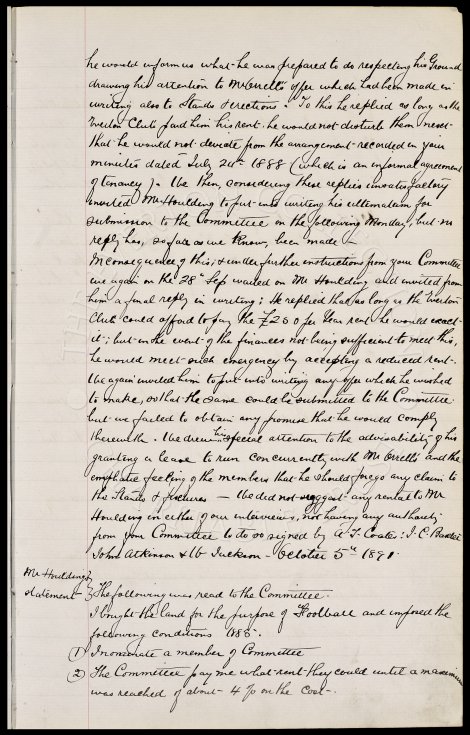 he would inform us what he was prepared to do respecting his Ground
drawing his attention to Mr Orrell's offer which had been made in
writing also to Stands & erections. To this he replied as long as the
Everton Club paid him his rent, he would not disturb them next
that he would not deviate from the arrangement recorded in your
minutes dated July 24th 1888 (which is an informal agreement
of tenancy). We then, considering these replies unsatisfactory
invited Mr Houlding to put into writing his ultimatum for
submission to the Committee on the following Monday, but no
reply has, so far as we know, been made —
In consequence of this, & under further instruction from your Committee
we again on the 28th Sep waited on Mr Houlding and invited from
him a final reply in writing: He replied that as long as the Everton
Club could afford to pay the £250 per Year rent he would exact
it; but in the event of the finances not being sufficient to meet this,
he would meet such emergency by accepting a reduced rent.
We again invited him to put into writing any offer which he wished
to make, so that the same could be submitted to the Committee
but we failed to obtain any promise that he would comply
therewith. We drew his special attention to the advisability of his
granting a lease to run concurrently with Mr Orrell's and the
emphatic feeling of the members that he should forego any claim to
the Stands & fixtures — We did not suggest any rental to Mr
Houlding in either of our interviews, not having any authority
from your Committee to do so signed by A. T. Coates: J. C. Baxter
John Atkinson & W Jackson - October 5th 1891
Mr Houldings
statement
The following was read to the Committee.
I bought the land for the purpose of Football and imposed the
following conditions 1885.
(1) I nominate a member of Committee
(2) The Committee pay me what rent they could until a maximum
was reached of about 4 % on the cost.